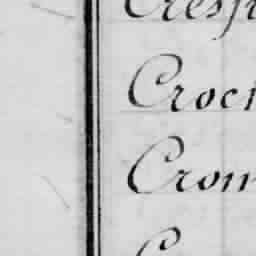 Cresp
Croci
Crom
C